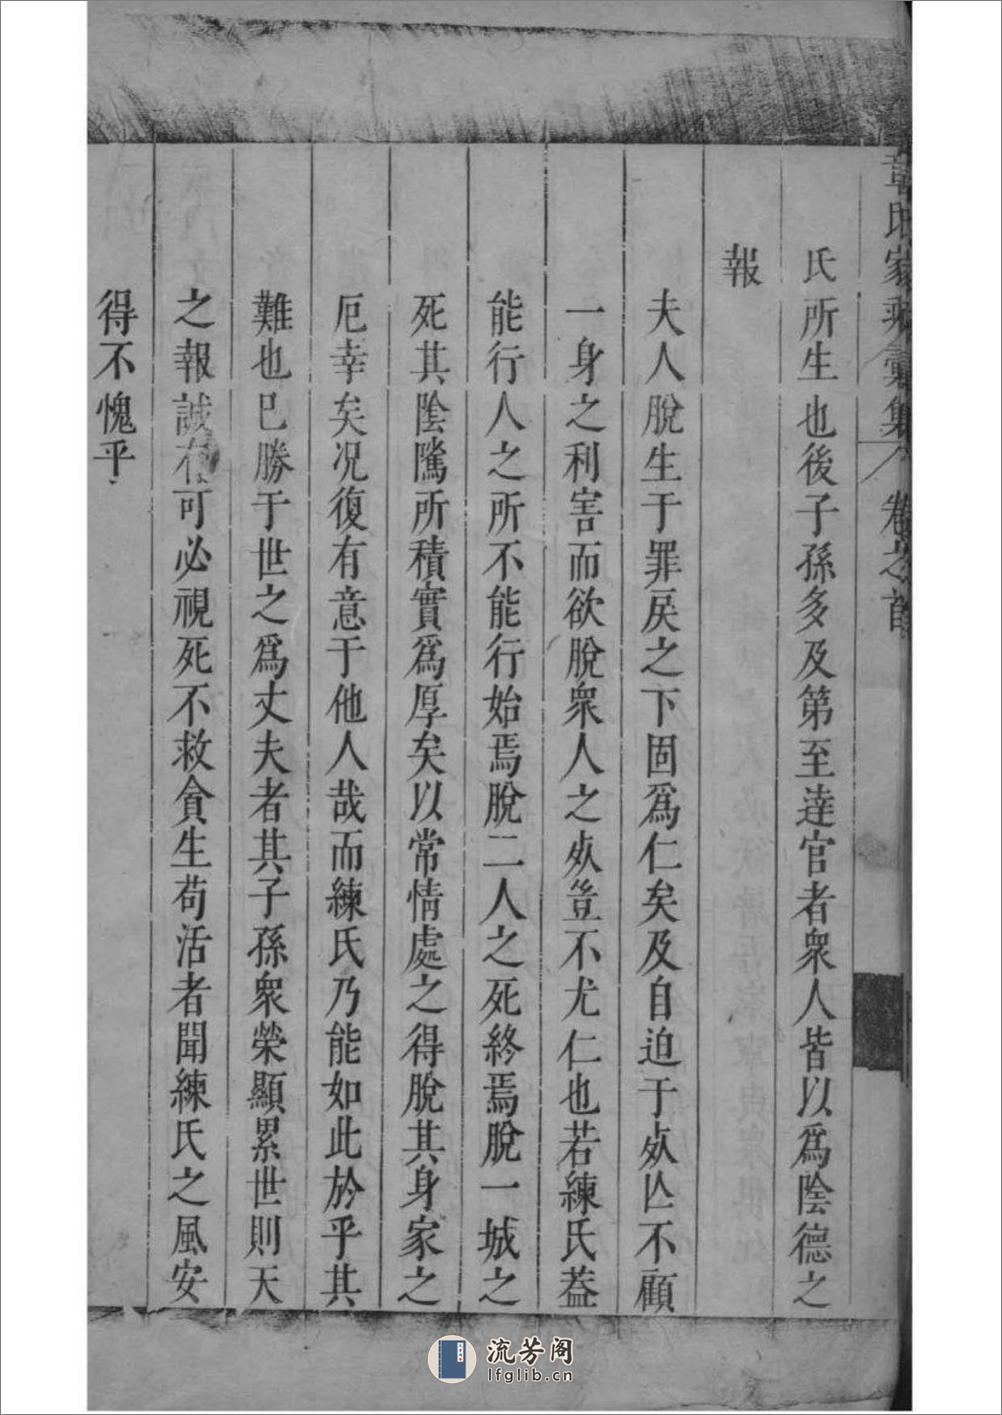 章氏家乘彙集 卷之首
氏所生也後子孫多及第至達官者衆人皆以爲陰德之
報
夫人脫生于罪戾之下固爲仁矣及自迫于死亾不顧
一身之利害而欲脫衆人之死豈不尤仁也若練氏葢
能行人之所不能行始焉脫二人之死終焉脫一城之
死其陰隲所積實爲厚矣以常情處之得脫其身家之
厄幸矣况復有意于他人哉而練氏乃能如此於乎其
難也已勝于世之爲丈夫者其子孫衆榮顯累世則天
之報誠有可必視死不救貪生苟活者聞練氏之風安
得不愧乎
流芳阁
lfglib.cn